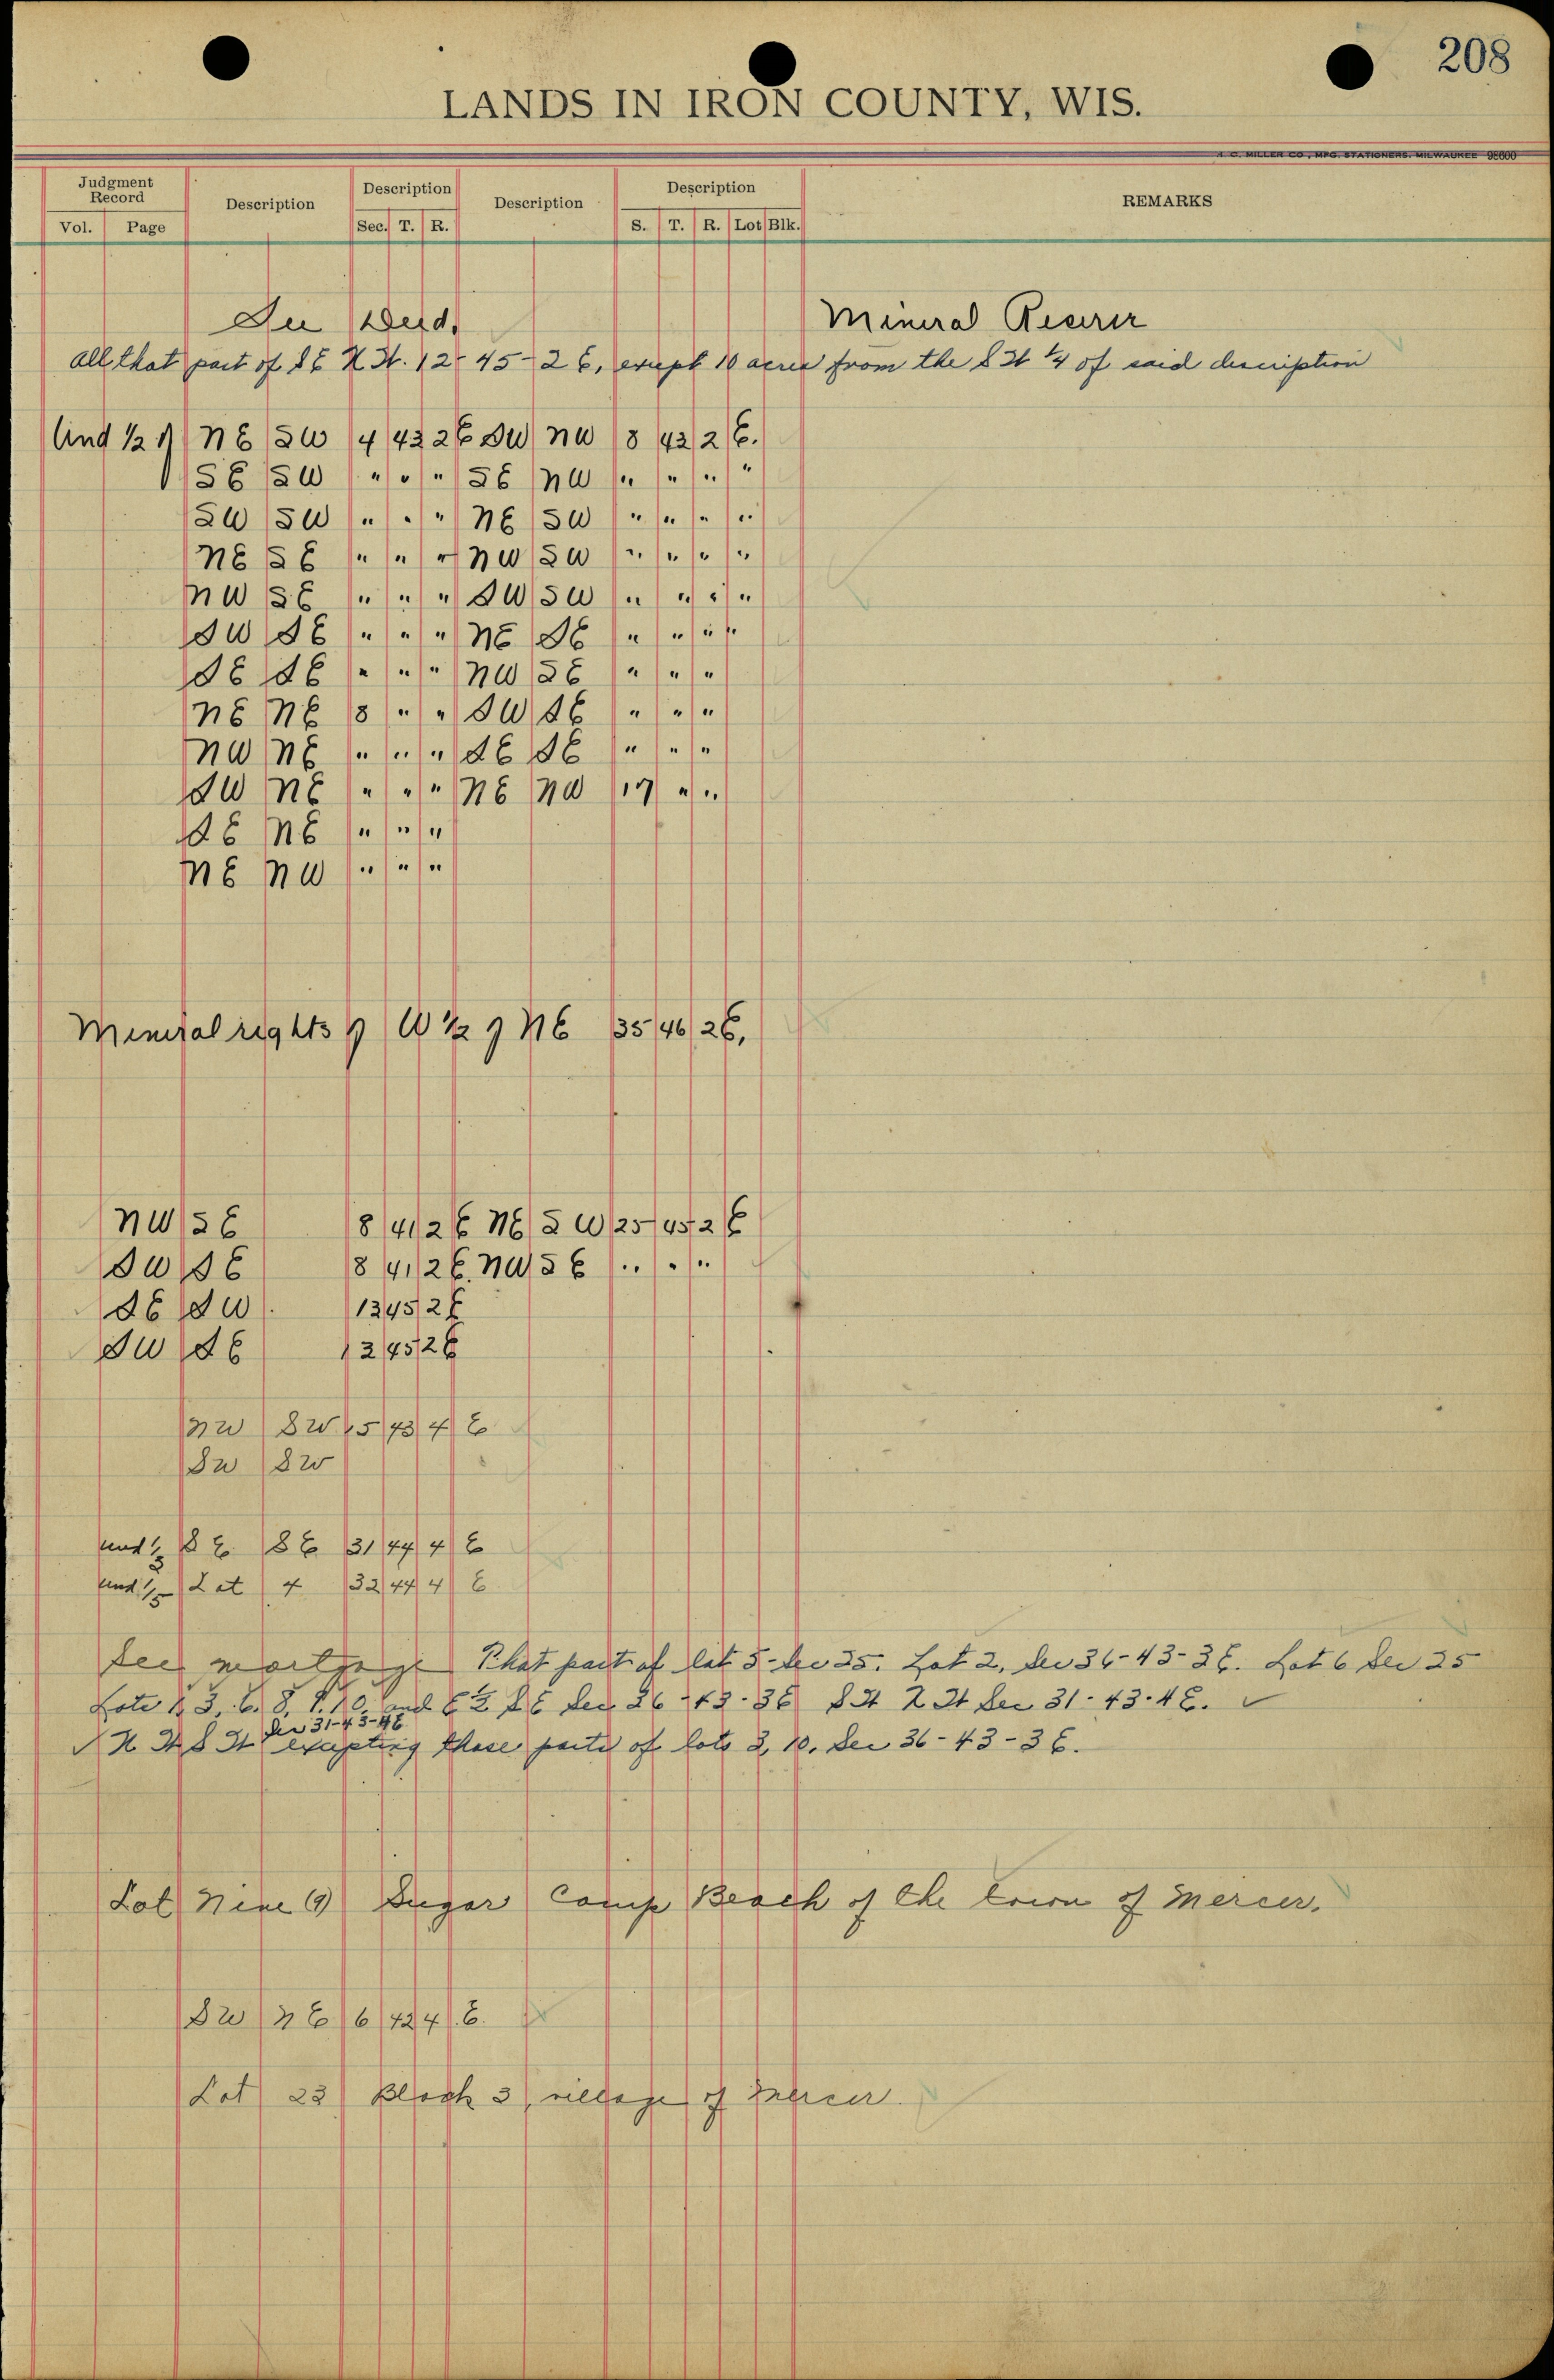 208
LANDS IN IRON COUNTY, WIS.
H. C. MILLER CO., MFG. STATIONERS. MILWAUKEE 98600
Judgment Record Description Description Description Description REMARKS
Vol. Page Sec. T. R. S. T. R. Lot Blk.
See Deed. Mineral Reserv
All that part of S E N W. 12-45-2 E, except 10 acres from the S W 1/4 of said description
Und 1/2 of NE SW 4 43 2E SW NW 8 43 2 E.
SE SW " " " SE NW " " " "
SW SW " " " NE SW " " " "
NE SE " " " NW SW " " " "
NW SE " " " SW SW " " " "
SW SE " " " NE SE " " " "
SE SE " " " NW SE " " "
NE NE 8 " " SW SE " " "
NW NE " " " SE SE " " "
SW NE " " " NE NW 17 " "
SE NE " " "
NE NW " " "
Mineral rights of W 1/2 of NE 35 46 2E,
NW SE 8 41 2E NE SW 25 45 2E
SW SE 8 41 2E. NW SE " " "
SE SW 12 45 2E
SW SE 12 45 2E
NW SW 15 43 4 E
SW SW
und 1/3 S E S E 31 44 4 E
und 1/5 Lot 4 32 44 4 E
See mortgage That part of lot 5-Sec 25. Lot 2, Sec 36-43-3E. Lot 6 Sec 25
Lots 1, 3, 6, 8, 9, 10, and E 1/2 S E Sec 26-43-3E S W N W Sec 31-43-4E. ✓
Sec 31-43-4E
✓ N W S W excepting those parts of lots 3, 10, Sec 36-43-3E.
Lot Nine (9) Sugar Camp Beach of the town of Mercer.
SW NE 6 42 4 E.
Lot 23 Block 3, village of Mercer.